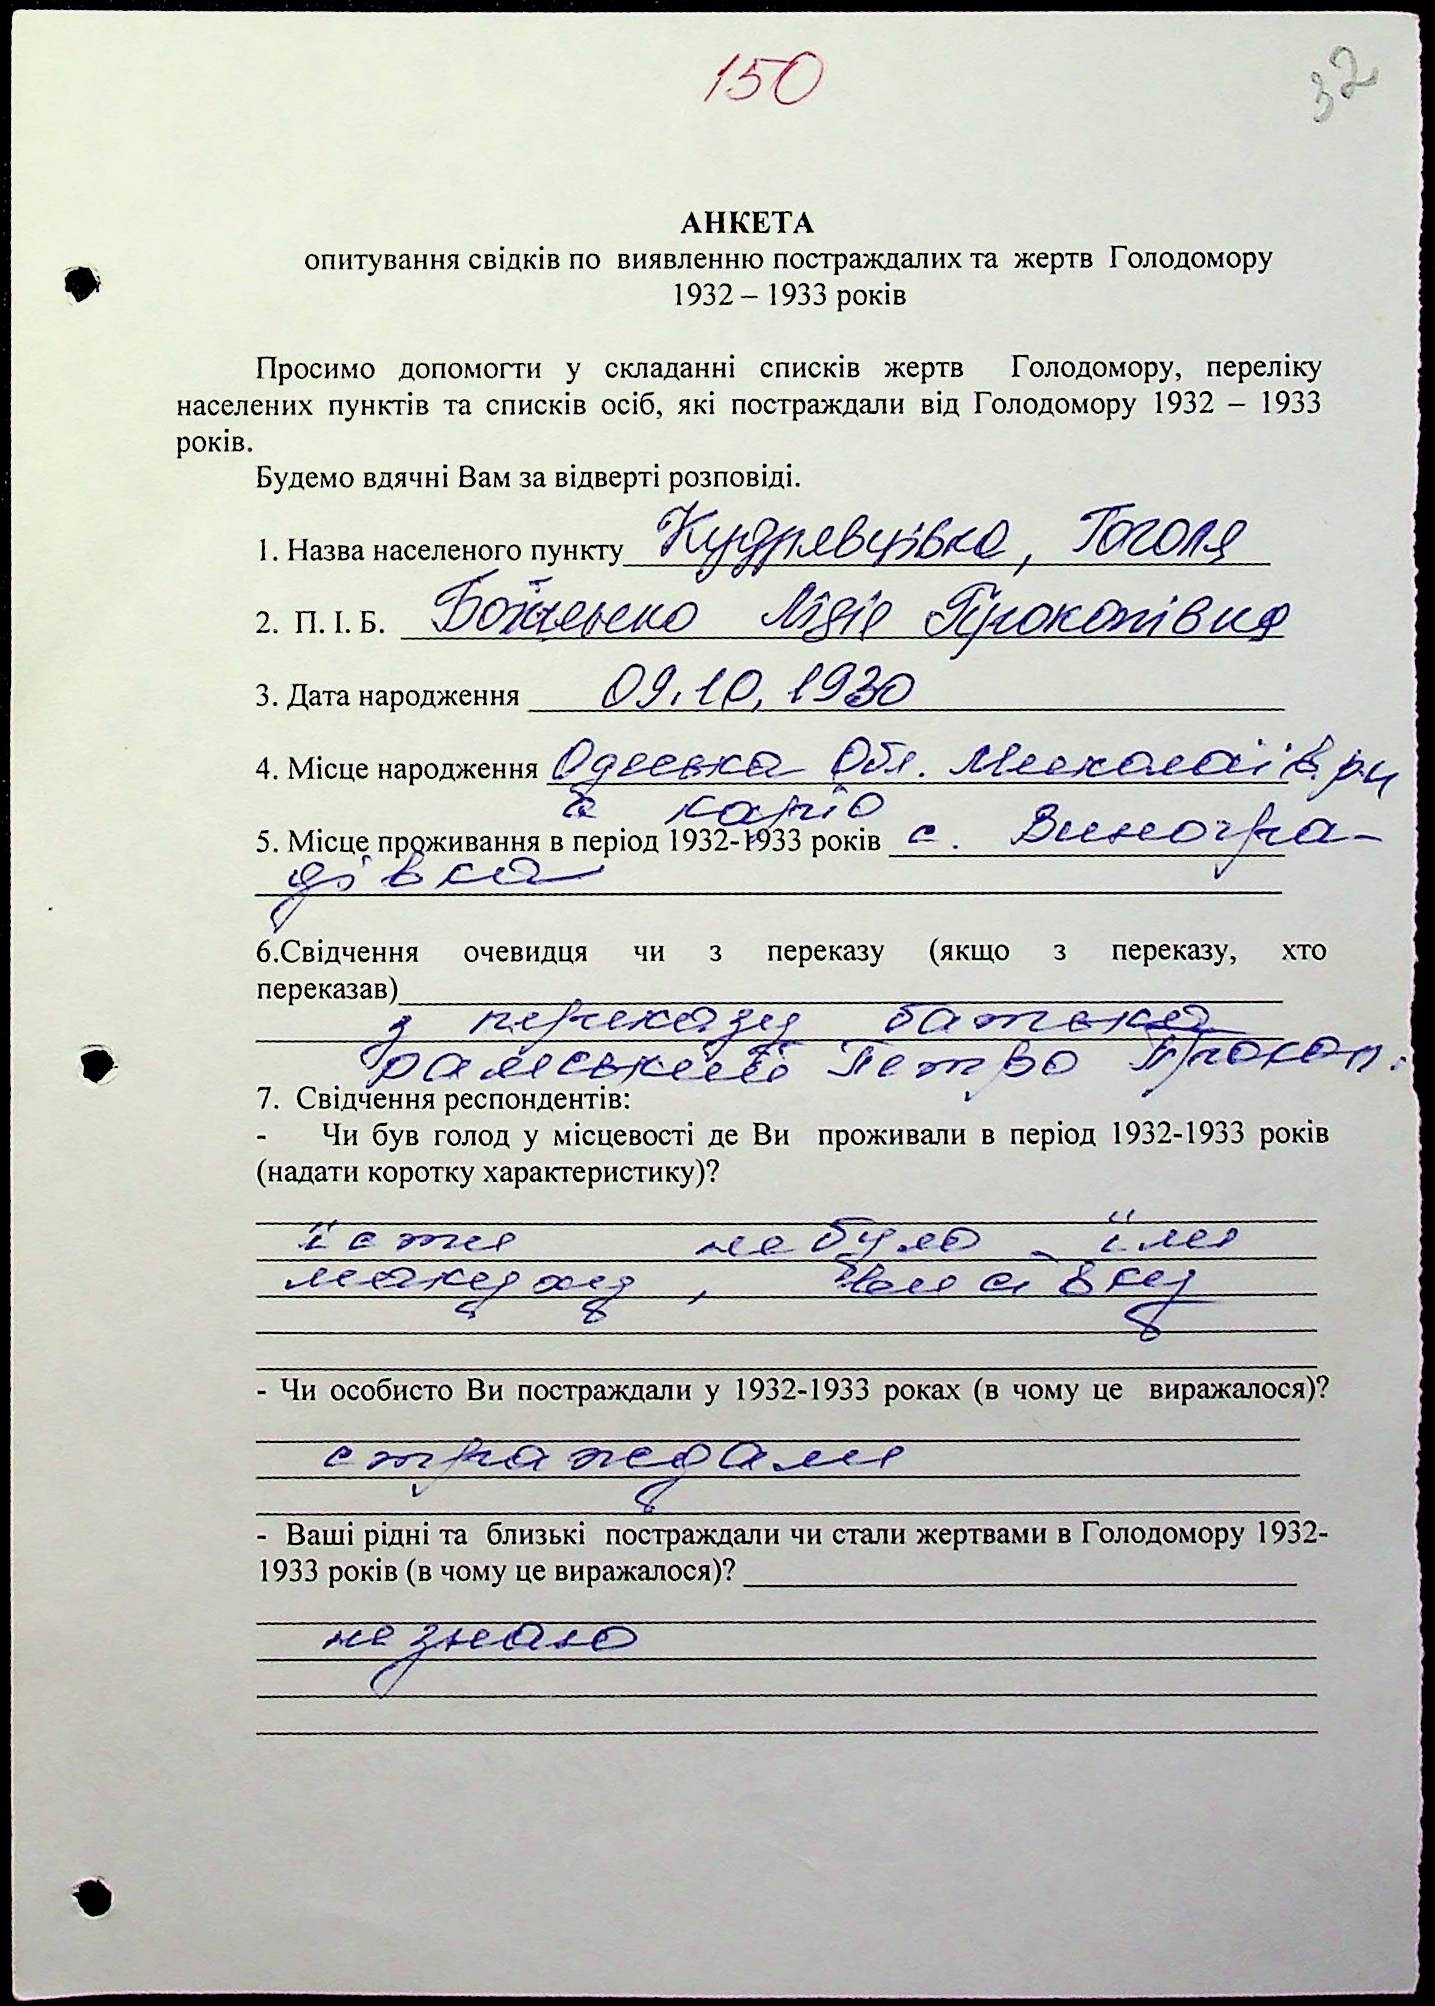 150
32
АНКЕТА
опитування свідків по виявленню постраждалих та жертв Голодомору
1932 – 1933 років
Просимо допомогти у складанні списків жертв Голодомору, переліку
населених пунктів та списків осіб, які постраждали від Голодомору 1932 – 1933
років.
Будемо вдячні Вам за відверті розповіді.
1. Назва населеного пункту Кудрявцівка, Гоголя
2. П. І. Б. Лідія Прокопівна
3. Дата народження 09.10.1930
4. Місце народження Одеська Обл. Миколаїв. р-н
5. Місце проживання в період 1932-1933 років с. Виногра-
дівка
6.Свідчення очевидця чи з переказу (якщо з переказу, хто
переказав)
з переказу батька
Петро Прокоп.
7. Свідчення респондентів:
- Чи був голод у місцевості де Ви проживали в період 1932-1933 років
(надати коротку характеристику)?
їсти не було - їли
макуху,
- Чи особисто Ви постраждали у 1932-1933 роках (в чому це виражалося)?
страждали
- Ваші рідні та близькі постраждали чи стали жертвами в Голодомору 1932-
1933 років (в чому це виражалося)?
не знаю